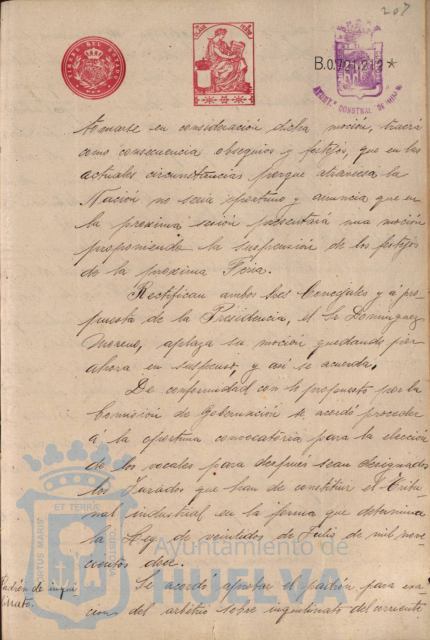 207
TIMBRE DEL ESTADO
B.0.721.212*
AYUNT.º CONSTNAL. DE HUELVA
tomarse en consideración dicha moción, traería
como consecuencia obsequios y festejos, que en las
actuales circunstancias porque atraviesa la
Nación no sería oportuno y anuncia que en
la proxima sesión presentará una moción
proponiendo la suspensión de los festejos
de la proxima Feria.
Rectifican ambos Sres Concejales y á pro-
puesta de la Presidencia, el Sr Dominguez
Moreno, aplaza su moción quedando por
ahora en suspenso, y asi se acuerda.
De conformidad con lo propuesto por la
Comisión de Gobernación se acordó proceder
á la oportuna convocatoria para la elección
de los vocales para después sean designados
los Jurados que han de constituir el Tribu-
nal industrial en la forma que determina
la Ley de veintidos de Julio de mil nove-
cientos doce.
Padrón de inqui-
linato.
Se acordó aprobar el padrón para exac-
cion del arbitrio sobre inquilinato del corriente
PORTUS MARIS ET TERRAE CUSTODIA
Ayuntamiento de
HUELVA